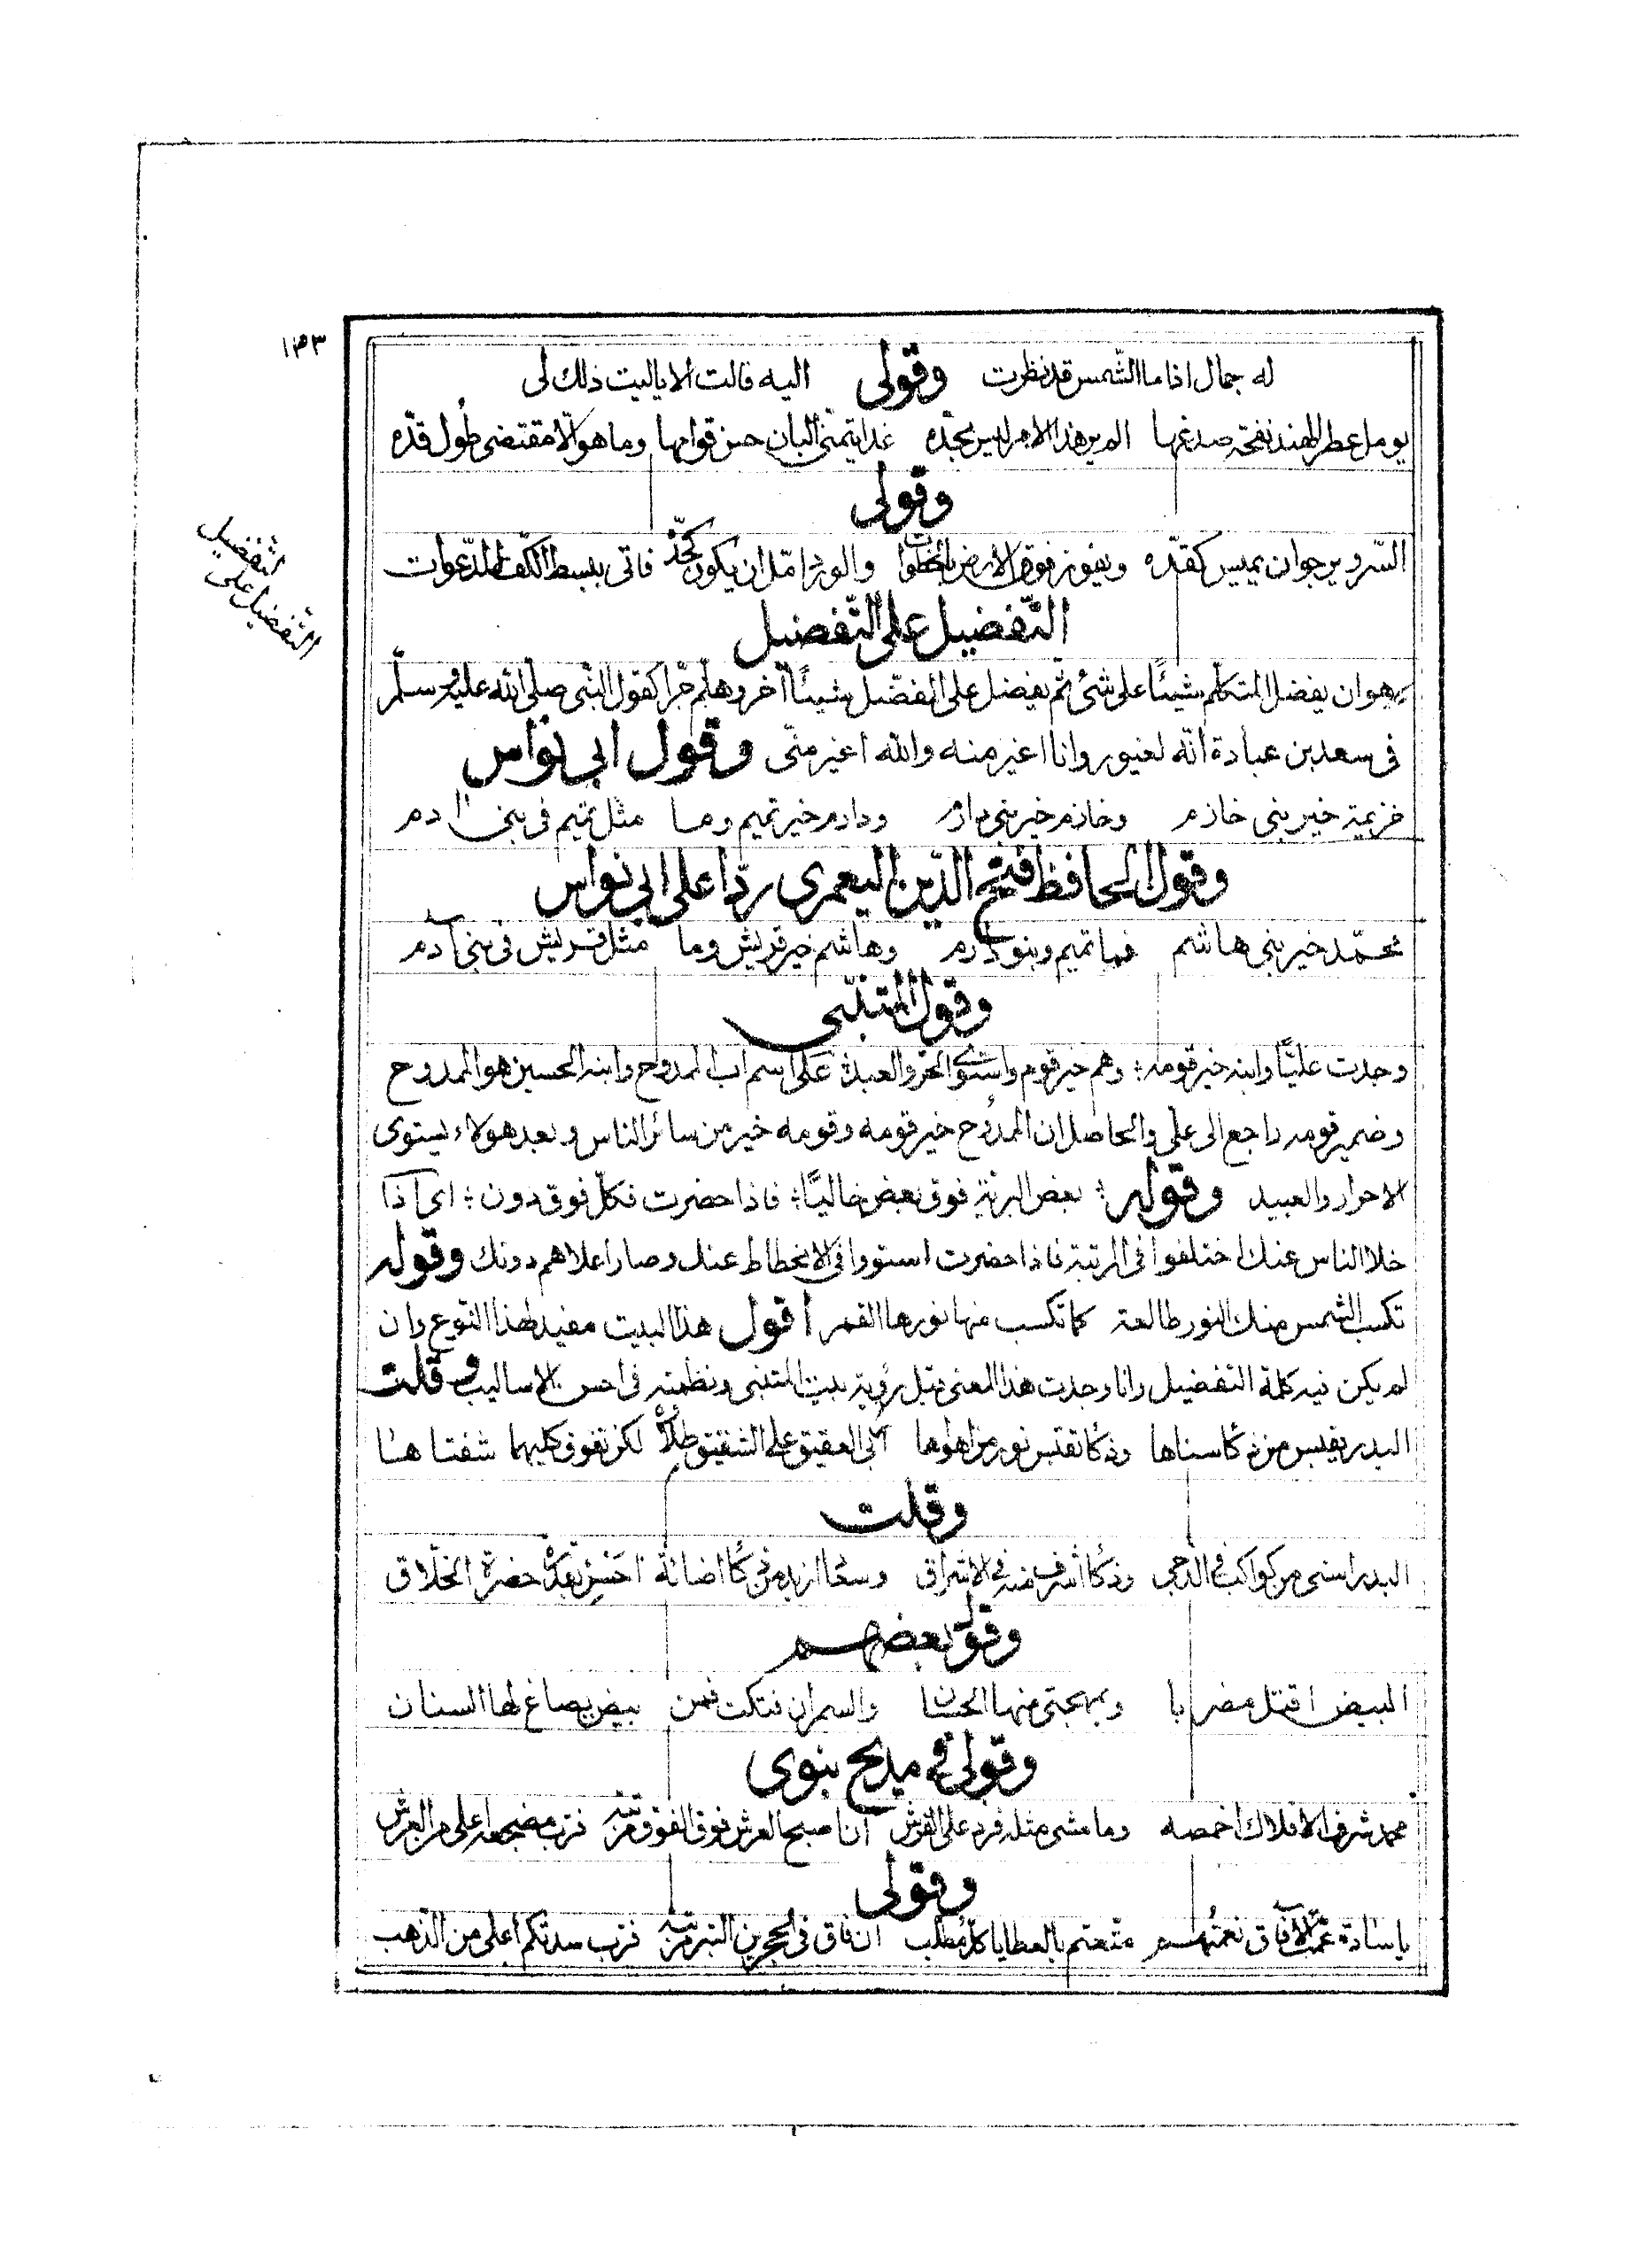 ١٣٣
له جمال اذا ما الشّمس قد نظرت وقولى اليه قالت الا ياليت ذلك لى
يومل عطر الهند نفحة صدغها الم ير هذا الامر ليس بجدّه غدا يتمنى البان حسن قوامها وما هو الّا مقتضى طول قدّه
وقولى
السّرو يرجوان يميس كقدّه ويفوز فوق الارض بالخطوات والورد امّل ان يكون كخدّه فاتى ببسط الكفّ للدّعوات
التّفضيل على التّفضيل
التّفضيل على التّفضيل
هو ان يفضل المتكلّم شيئًا على شئ ثمّ يفضل على المفضّل شيئًا آخر وهلّم جرّا كقول النّبى صلى الله عليه وسلّم
فى سعد بن عبادة انّه لغيور وانا اغير منه والله اغير منّى وقول ابى نواس
خزيمة خير بنى خازم وخازم خير بنى دارم ودارم خير تميم وما مثل تميم فى بنى آدم
وقول الحافظ فتح الدّين اليعمرى ردّا على ابى نواس
محمّد خير بنى هاشم فما تميم وبنو دارم وهاشم خير قريش وما مثل قريش فى بنى آدم
وقول المتنبّى
وجدت عليًّا وابنه خير قومه؛ وهم خير قوم واستوى الحر والعبد؛ على اسم اب الممدوح وابنه الحسين هو الممدوح
وضمير قومه راجع الى على والحاصل ان الممدوح خير قومه وقومه خير من سائر الناس وبعد هولاء يستوى
الاحرار والعبيد وقوله؛ بعض البريّة فوق بعض خاليًا؛ فاذا حضرت فكلّ فوق دون؛ اى اذا
خلا الناس عنك اختلفوا فى المرتبة فاذا حضرت استووا فى الانحطاط عنك وصار اعلاهم دونك وقوله
تكسب الشمس منك النور طالعة كما تكسب منها نورها القمر اقول هذا البيت مفيد لهذا النوع وان
لم يكن فيه كلمة التفضيل وانا وجدت هذا المعنى قبل رؤية بيت المتنبى ونظمته فى احسن الاساليب وقلت
البدر يقبس من ذكا سناها وذكا تقتبس نور من اهواها العقيق على الشقيق لكن تفوق كليهما شفتاها
وقلت
البدر اسنى من كواكب فى الدّجى وذكا اشرف منه فى الاشراق وسعا ازيد من ذكا اضائة حضرة الخلّاق
وقول بعضهم
البيض اقتل مضربا وبمهجتى منها الحسان والسمر ان فتكت فمن بيض يصاغ لها السنان
وقولى فى مديح نبوى
محمد شرف الافلاك اخمصه وما مشى مثله فرد على الفرش ان اصبح العرش فوق الفوق مرتبة فترب مضجعه اعلى من العرش
وقولى
يا سادة عمّت الآفاق نعمتهم متعتم بالعطايا كل مطلب ان فاق فى الحجرين التبر مرتبة فترب سدتكم اعلى من الذّهب